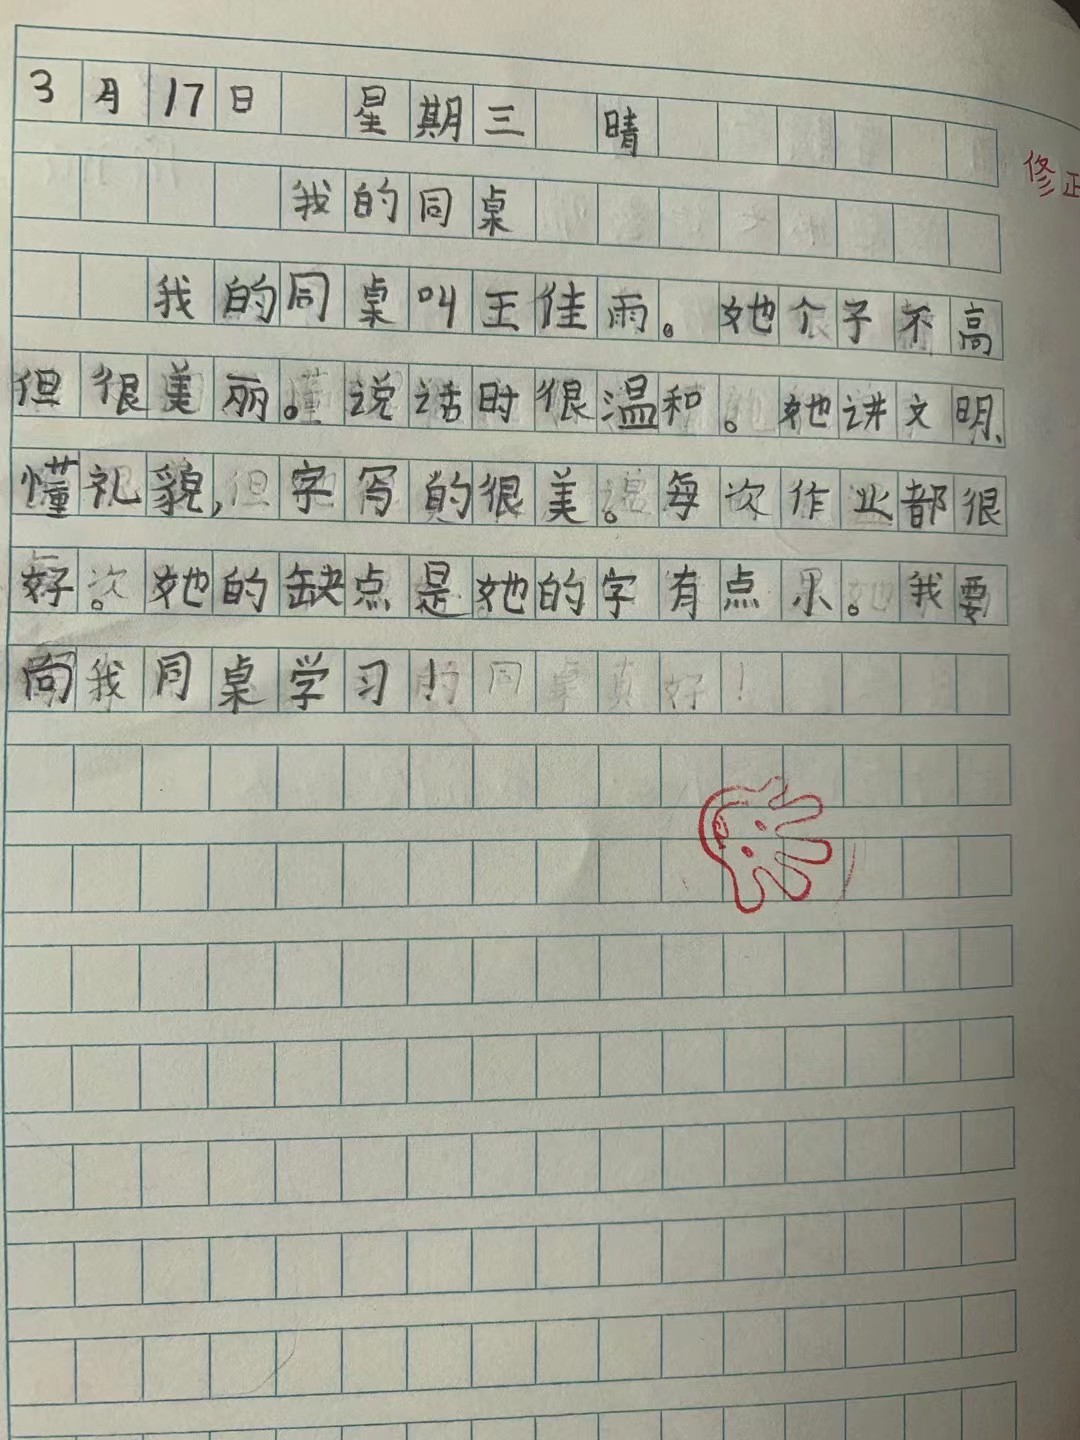 3月17日 星期三 晴
修正
我的同桌
我的同桌叫王佳雨。她个子不高
但很美丽。说话时很温和。她讲文明、
懂礼貌,字写的很美。每次作业都很
好。她的缺点是她的字有点。我要
向我同桌学习!